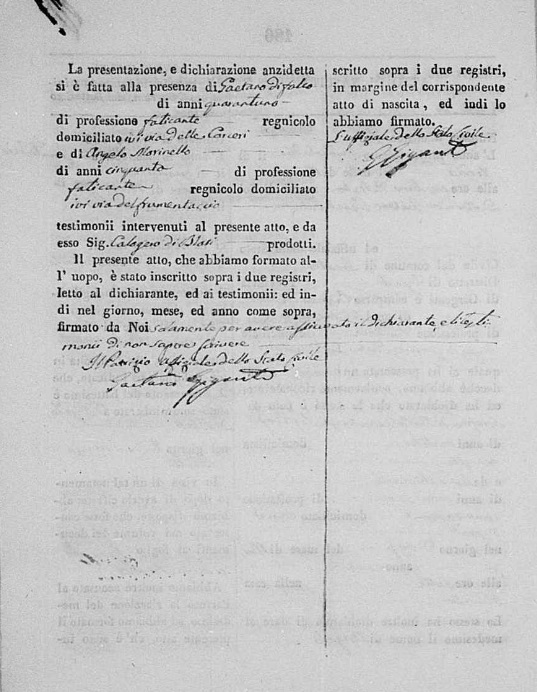 La presentazione, e dichiarazione anzidetta
si è fatta alla presenza di Gaetano di falco
di anni quarantuno
di professione faticante regnicolo
domiciliato ivi via delle Carceri
e di Angelo Morinello
di anni cinquanta di professione
faticante regnicolo domiciliato
ivi via del frumentario
testimonii intervenuti al presente atto, e da
esso Sig. Calogero di Blasi prodotti.
Il presente atto, che abbiamo formato al-
l' uopo, è stato inscritto sopra i due registri,
letto al dichiarante, ed ai testimonii: ed in-
di nel giorno, mese, ed anno come sopra,
firmato da Noi solamente per avere assicurato il dichiarante, e i testi
monii di non sapere scrivere
Il Patrizio uffiziale dello Stato Civile
Gaetano Gigante
scritto sopra i due registri,
in margine del corrispondente
atto di nascita, ed indi lo
abbiamo firmato.
L'uffiziale dello Stato Civile
G Gigante